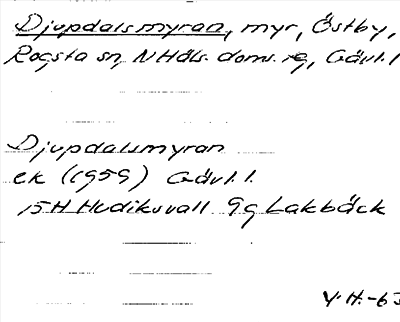 Djupdalsmyran, myr, Östby,
Rogsta sn, NHäls. doms. reg, Gävl. l
Djupdalsmyran
ek (1959) Gävl. l.
15H Hudiksvall 9g Lakbäck
Y.H.-63